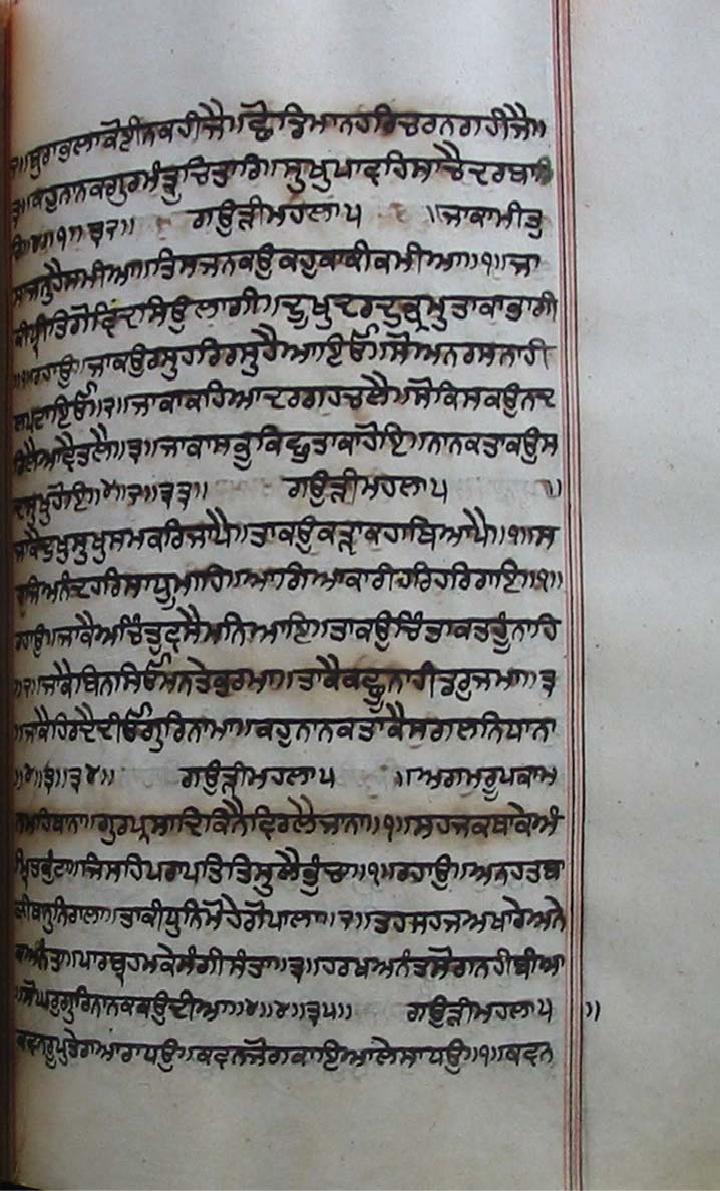 ੩॥ਬੁਰਾਭਲਾਕੋਈਨਕਹੀਜੈ॥ਛੋਡਿਮਾਨਹਰਿਚਰਨਗਹੀਜੈ॥
੩॥ਕਹੁਨਾਨਕਗੁਰਮੰਤ੍ਰੁਚਿਤਾਰਿ॥ਸੁਖੁਪਾਵਹਿਸਾਚੈਦਰਬਾਰਿ
॥੪॥੧॥੩੨॥ ਗਉੜੀਮਹਲਾ੫ ॥ਜਾਕਾਮੀਤੁ
ਸਾਜਨੁਹੈਸਮੀਆ॥ਤਿਸਜਨਕਉਕਹੁਕਾਕੀਕਮੀਆ॥੧॥ਜਾ
ਕੀਪ੍ਰੀਤਿਗੋਵਿੰਦਸਿਉਲਾਗੀ॥ਦੁਖੁਦਰਦੁਭ੍ਰਮੁਤਾਕਾਭਾਗੀ
॥੧॥ਰਹਾਉ॥ਜਾਕਉਰਸੁਹਰਿਰਸੁਹੈਆਇਓ॥ਸੋਅਨਰਸਨਾਹੀ
ਲਪਟਾਇਓ॥੨॥ਜਾਕਾਕਹਿਆਦਰਗਹਚਲੈ॥ਸੋਕਿਸਕਉਨਦ
ਰਿਲੈਆਵੈਤਲੈ॥੩॥ਜਾਕਾਸਭੁਕਿਛੁਤਾਕਾਹੋਇ॥ਨਾਨਕਤਾਕਉਸ
ਦਾਸੁਖੁਹੋਇ॥੪॥੨॥੩੩॥ ਗਉੜੀਮਹਲਾ੫ ॥
ਜਾਕੈਦੁਖੁਸੁਖੁਸਮਕਰਿਜਾਪੈ॥ਤਾਕਉਕਾੜਾਕਹਾਬਿਆਪੈ॥੧॥ਸ
ਹਜਿਅਨੰਦਹਰਿਸਾਧੂਮਾਹਿ॥ਆਗਿਆਕਾਰੀਹਰਿਹਰਿਰਾਇ॥੧॥
ਰਹਾਉ॥ਜਾਕੈਅਚਿੰਤੁਵਸੈਮਨਿਆਇ॥ਤਾਕਉਚਿੰਤਾਕਤਹੂੰਨਾਹਿ
॥੨॥ਜਾਕੈਬਿਨਸਿਓਮਨਤੇਭਰਮਾ॥ਤਾਕੈਕਛੂਨਾਹੀਡਰੁਜਮਾ॥੩
॥ਜਾਕੈਹਿਰਦੈਦੀਓਗੁਰਿਨਾਮਾ॥ਕਹੁਨਾਨਕਤਾਕੈਸਗਲਨਿਧਾਨਾ
॥੪॥੩॥੩੪॥ ਗਉੜੀਮਹਲਾ੫ ॥ਅਗਮਰੂਪਕਾਮ
ਨਮਹਿਥਾਨਾ॥ਗੁਰਪ੍ਰਸਾਦਿਕਿਨੈਵਿਰਲੈਜਾਨਾ॥੧॥ਸਹਜਕਥਾਕੇਅੰ
ਮ੍ਰਿਤਕੁੰਟਾ॥ਜਿਸਹਿਪਰਾਪਤਿਤਿਸੁਲੈਭੁੰਚਾ॥੧॥ਰਹਾਉ॥ਅਨਹਤਬਾ
ਣੀਥਾਨੁਨਿਰਾਲਾ॥ਤਾਕੀਧੁਨਿਮੋਹੇਗੋਪਾਲਾ॥੨॥ਤਹਸਹਜਅਖਾਰੇਅਨੇ
ਕਅਨੰਤਾ॥ਪਾਰਬ੍ਰਹਮਕੇਸੰਗੀਸੰਤਾ॥੩॥ਹਰਖਅਨੰਤਸੋਗਨਹੀਬੀਆ
॥ਸੋਘਰੁਗੁਰਿਨਾਨਕਕਉਦੀਆ॥੪॥੪॥੩੫॥ ਗਉੜੀਮਹਲਾ੫ ॥
ਕਵਨਰੂਪੁਤੇਰਾਆਰਾਧਉ॥ਕਵਨਜੋਗਕਾਇਆਲੇਸਾਧਉ॥੧॥ਕਵਨ